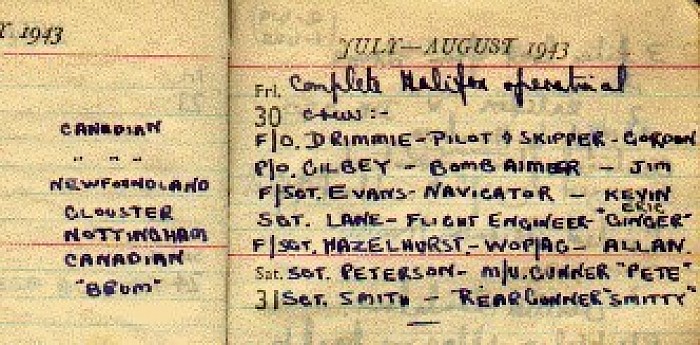 Y 1943
CANADIAN
" " "
NEWFOUNDLAND
GLOUSTER
NOTTINGHAM
CANADIAN
"BRUM"
JULY—AUGUST 1943
Fri. Complete Halifax operational
30 crew:-
F/O. DRIMMIE - PILOT & SKIPPER - GORDON
P/O. GILBEY - BOMB AIMER - JIM
F/SGT. EVANS - NAVIGATOR - KEVIN
ERIC
SGT. LANE - FLIGHT ENGINEER - "GINGER"
F/SGT. HAZELHURST - WOP/AG - ALLAN.
Sat. SGT. PETERSON - M/U. GUNNER "PETE"
31 SGT. SMITH - REAR GUNNER "SMITTY"